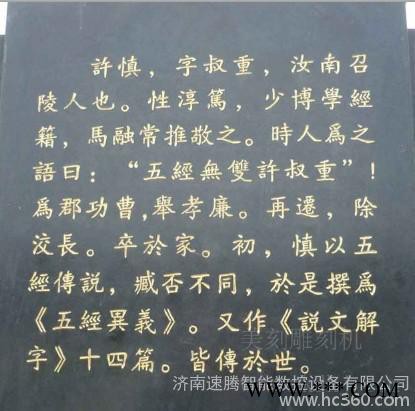 許慎，字叔重，汝南召
陵人也。性淳篤，少博學經
籍，馬融常推敬之。時人爲之
語曰：“五經無雙許叔重”！
爲郡功曹，舉孝廉。再遷，除
洨長。卒於家。初，慎以五
經傳説，臧否不同，於是撰爲
《五經異義》。又作《説文解
字》十四篇。皆傳於世。
美刻雕刻机
济南速腾智能数控设备有限公司
www.hc360.com